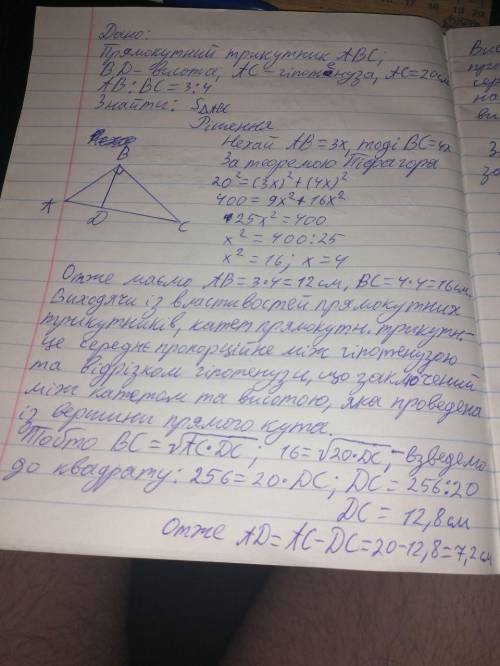 Дано:
Прямокутний трикутник ABC;
BD - висота, AC - гіпотенуза, AC = 20 см
AB : BC = 3 : 4
Знайти: S△ABC
Рішення
Нехай AB = 3x, тоді BC = 4x
За теоремою Піфагора
20² = (3x)² + (4x)²
400 = 9x² + 16x²
25x² = 400
x² = 400 : 25
x² = 16; x = 4
B
A
D
C
Отже маємо, AB = 3·4 = 12 см, BC = 4·4 = 16 см.
Виходячи із властивостей прямокутних
трикутників, катет прямокутн. трикутн. -
це середнє пропорційне між гіпотенузою
та відрізком гіпотенузи, що заключений
між катетом та висотою, яка проведена
із вершини прямого кута.
Тобто BC = √AC·DC; 16 = √20·DC; - взведемо
до квадрату: 256 = 20·DC; DC = 256:20
DC = 12,8 см
Отже AD = AC - DC = 20 - 12,8 = 7,2 см
Вис
на
ви
З